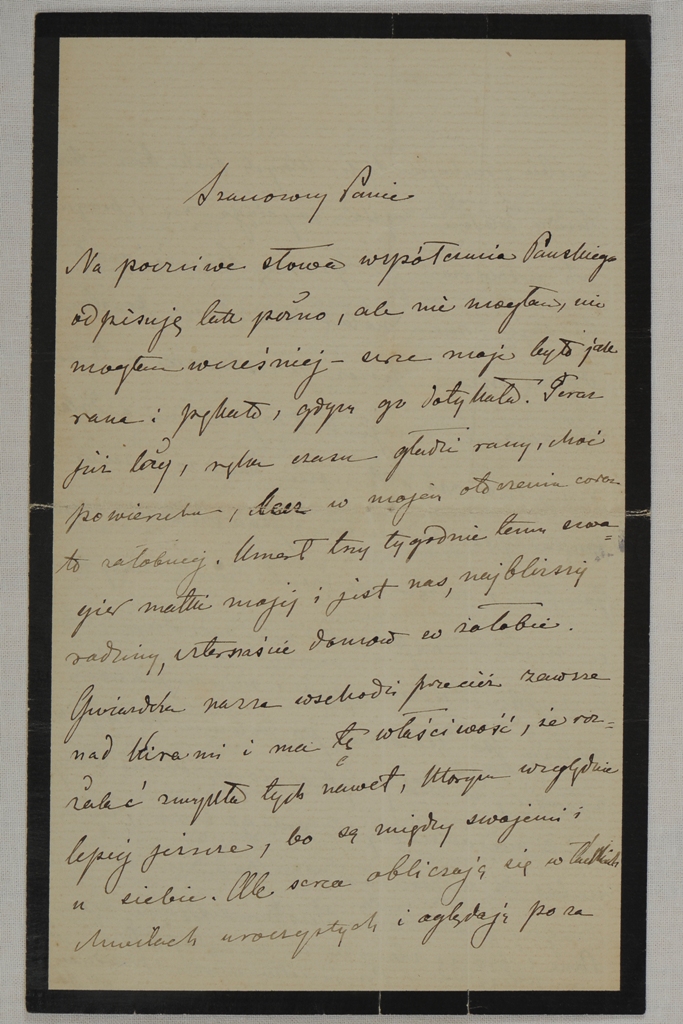 Szanowny Panie
Na poczciwe słowa współczucia Pańskiego
odpisuję tak późno, ale nie mogłam, nie
mogłam wcześniej – serce moje było jak
rana i pękało, gdym go dotykała. Teraz
już łzy, ręka czasu gładzi rany, choć
powierzchu, lecz w mojem otoczeniu coraz
to żałobniej. Umarł trzy tygodnie temu szwa=
gier matki mojej i jest nas, najbliższej
rodziny, czternaście domów w żałobie.
Gwiazdka nasza wschodzi przecież zawsze
nad kirami i ma tę właściwość, że roz=
żalać zwykła tych nawet, którym względnie
lepiej jeszcze, bo są między swojemi i
u siebie. Ale serca obliczają się w takich
chwilach uroczystych i oglądają poza